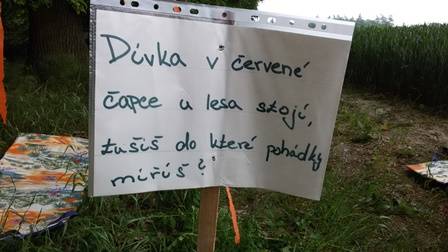 Dívka v červené
čapce u lesa stojí,
tušíš do které pohádky
míříš?